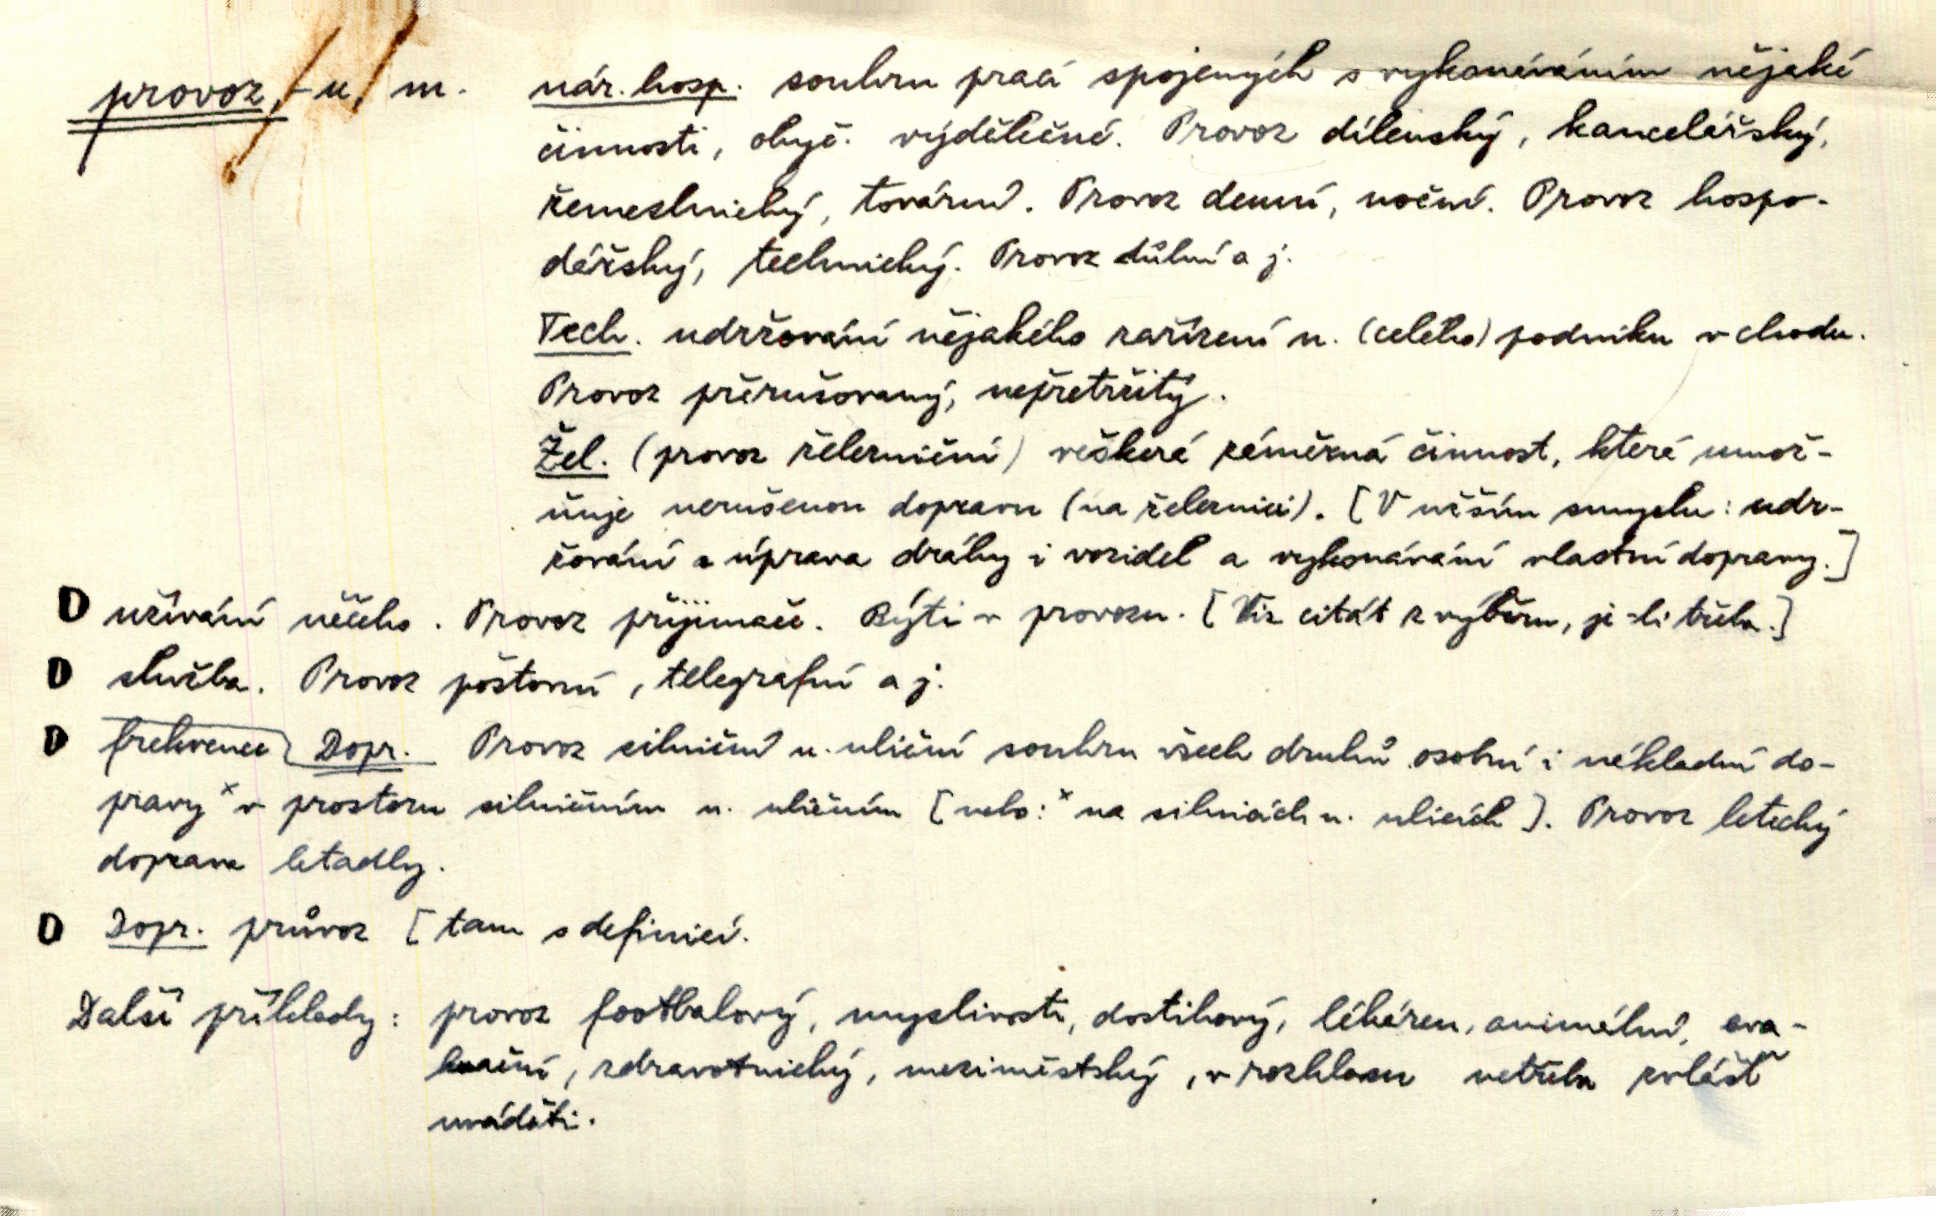 provoz, -u, m. nár. hosp. souhrn prací spojených s vykonáváním nějaké
činnosti, obyč. výdělečné. Provoz dílenský, kancelářský,
řemeslnický, tovární. Provoz denní, noční. Provoz hospo-
dářský, technický. Provoz důlní a j.
Tech. udržování nějakého zařízení n. (celého) podniku v chodu.
Provoz přerušovaný, nepřetržitý.
Žel. (provoz železniční) veškerá záměrná činnost, která umož-
ňuje nerušenou dopravu (na železnici). [V užším smyslu: udr-
žování a úprava dráhy i vozidel a vykonávání vlastní dopravy.]
D užívání něčeho. Provoz přijimače. Býti v provozu. [Viz citát z výběru, je-li třeba.]
D služba. Provoz poštovní, telegrafní a j.
D frekvence Dopr. Provoz silniční n. uliční souhrn všech druhů osobní i nákladní do-
pravy x v prostoru silničním n. uličním [nebo: x na silnicích n. ulicích]. Provoz letecký
doprava letadly.
D Dopr. průvoz [tam s definicí.
Další příklady: provoz footbalový, myslivosti, dostihový, lékáren, animální, eva-
kuační, zdravotnický, meziměstský, v rozhlasu netřeba zvlášť
uváděti.